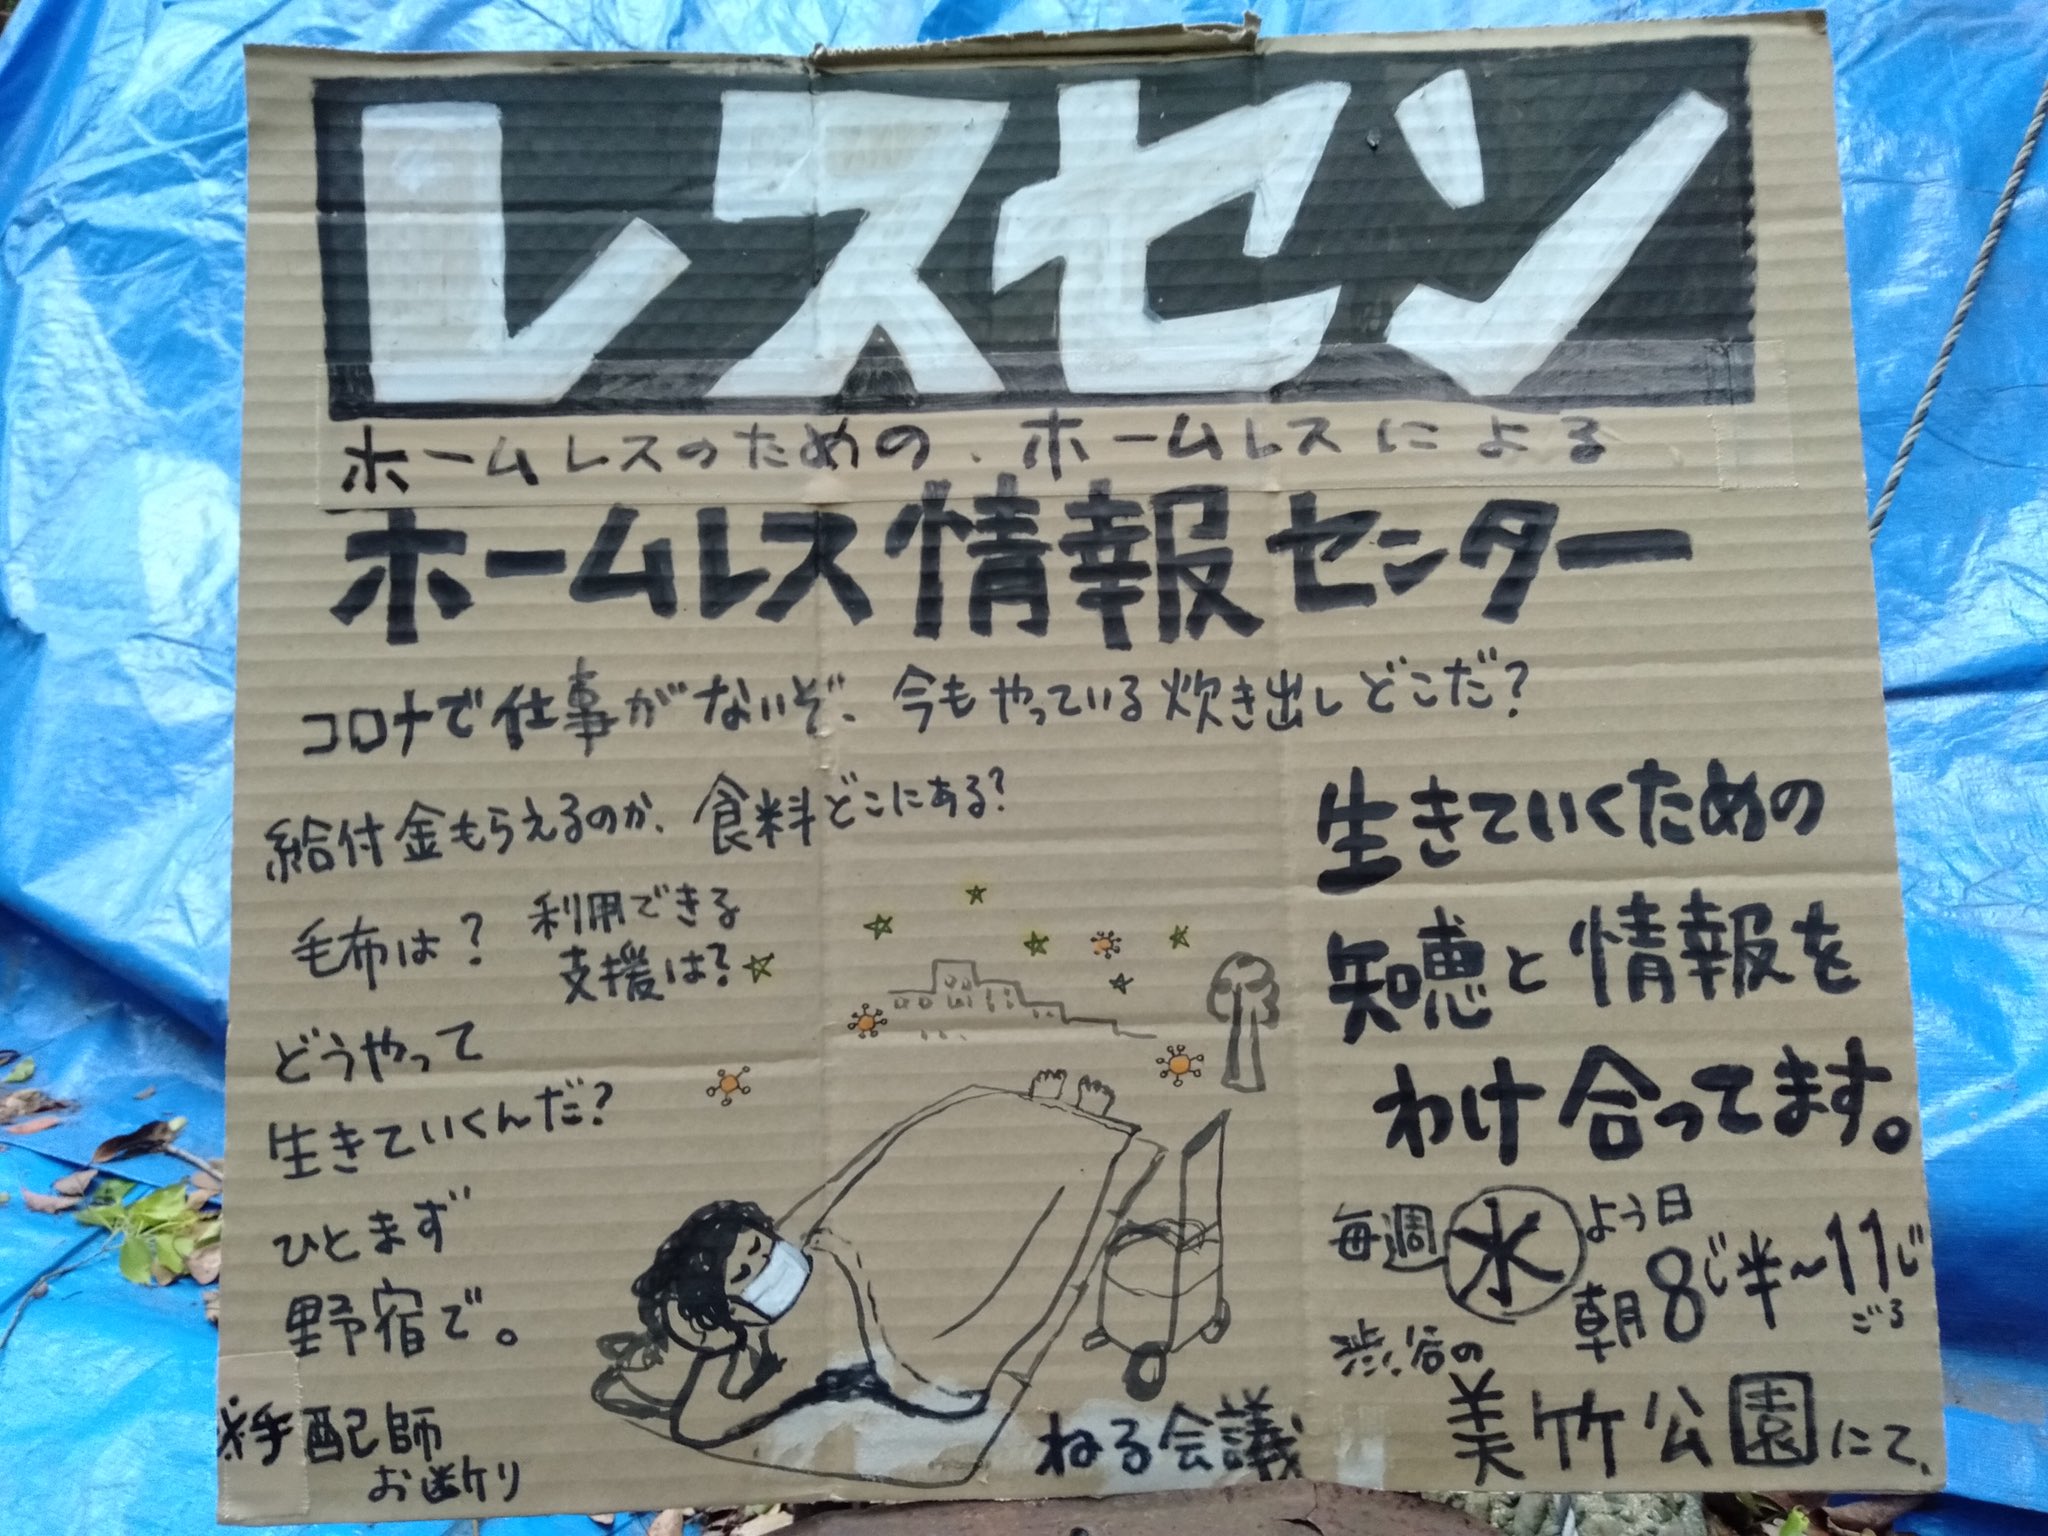 レスセン
ホームレスのための、ホームレスによる
ホームレス情報センター
コロナで仕事がないぞ、今もやっている炊き出しどこだ?
給付金もらえるのか、食料どこにある?
毛布は?
利用できる
支援は?
どうやって
生きていくんだ?
ひとまず
野宿で。
※手配師
お断り
生きていくための
知恵と情報を
わけ合ってます。
毎週水よう日
朝8じ半~11じ
ごろ
渋谷の
美竹公園にて、
ねる会議